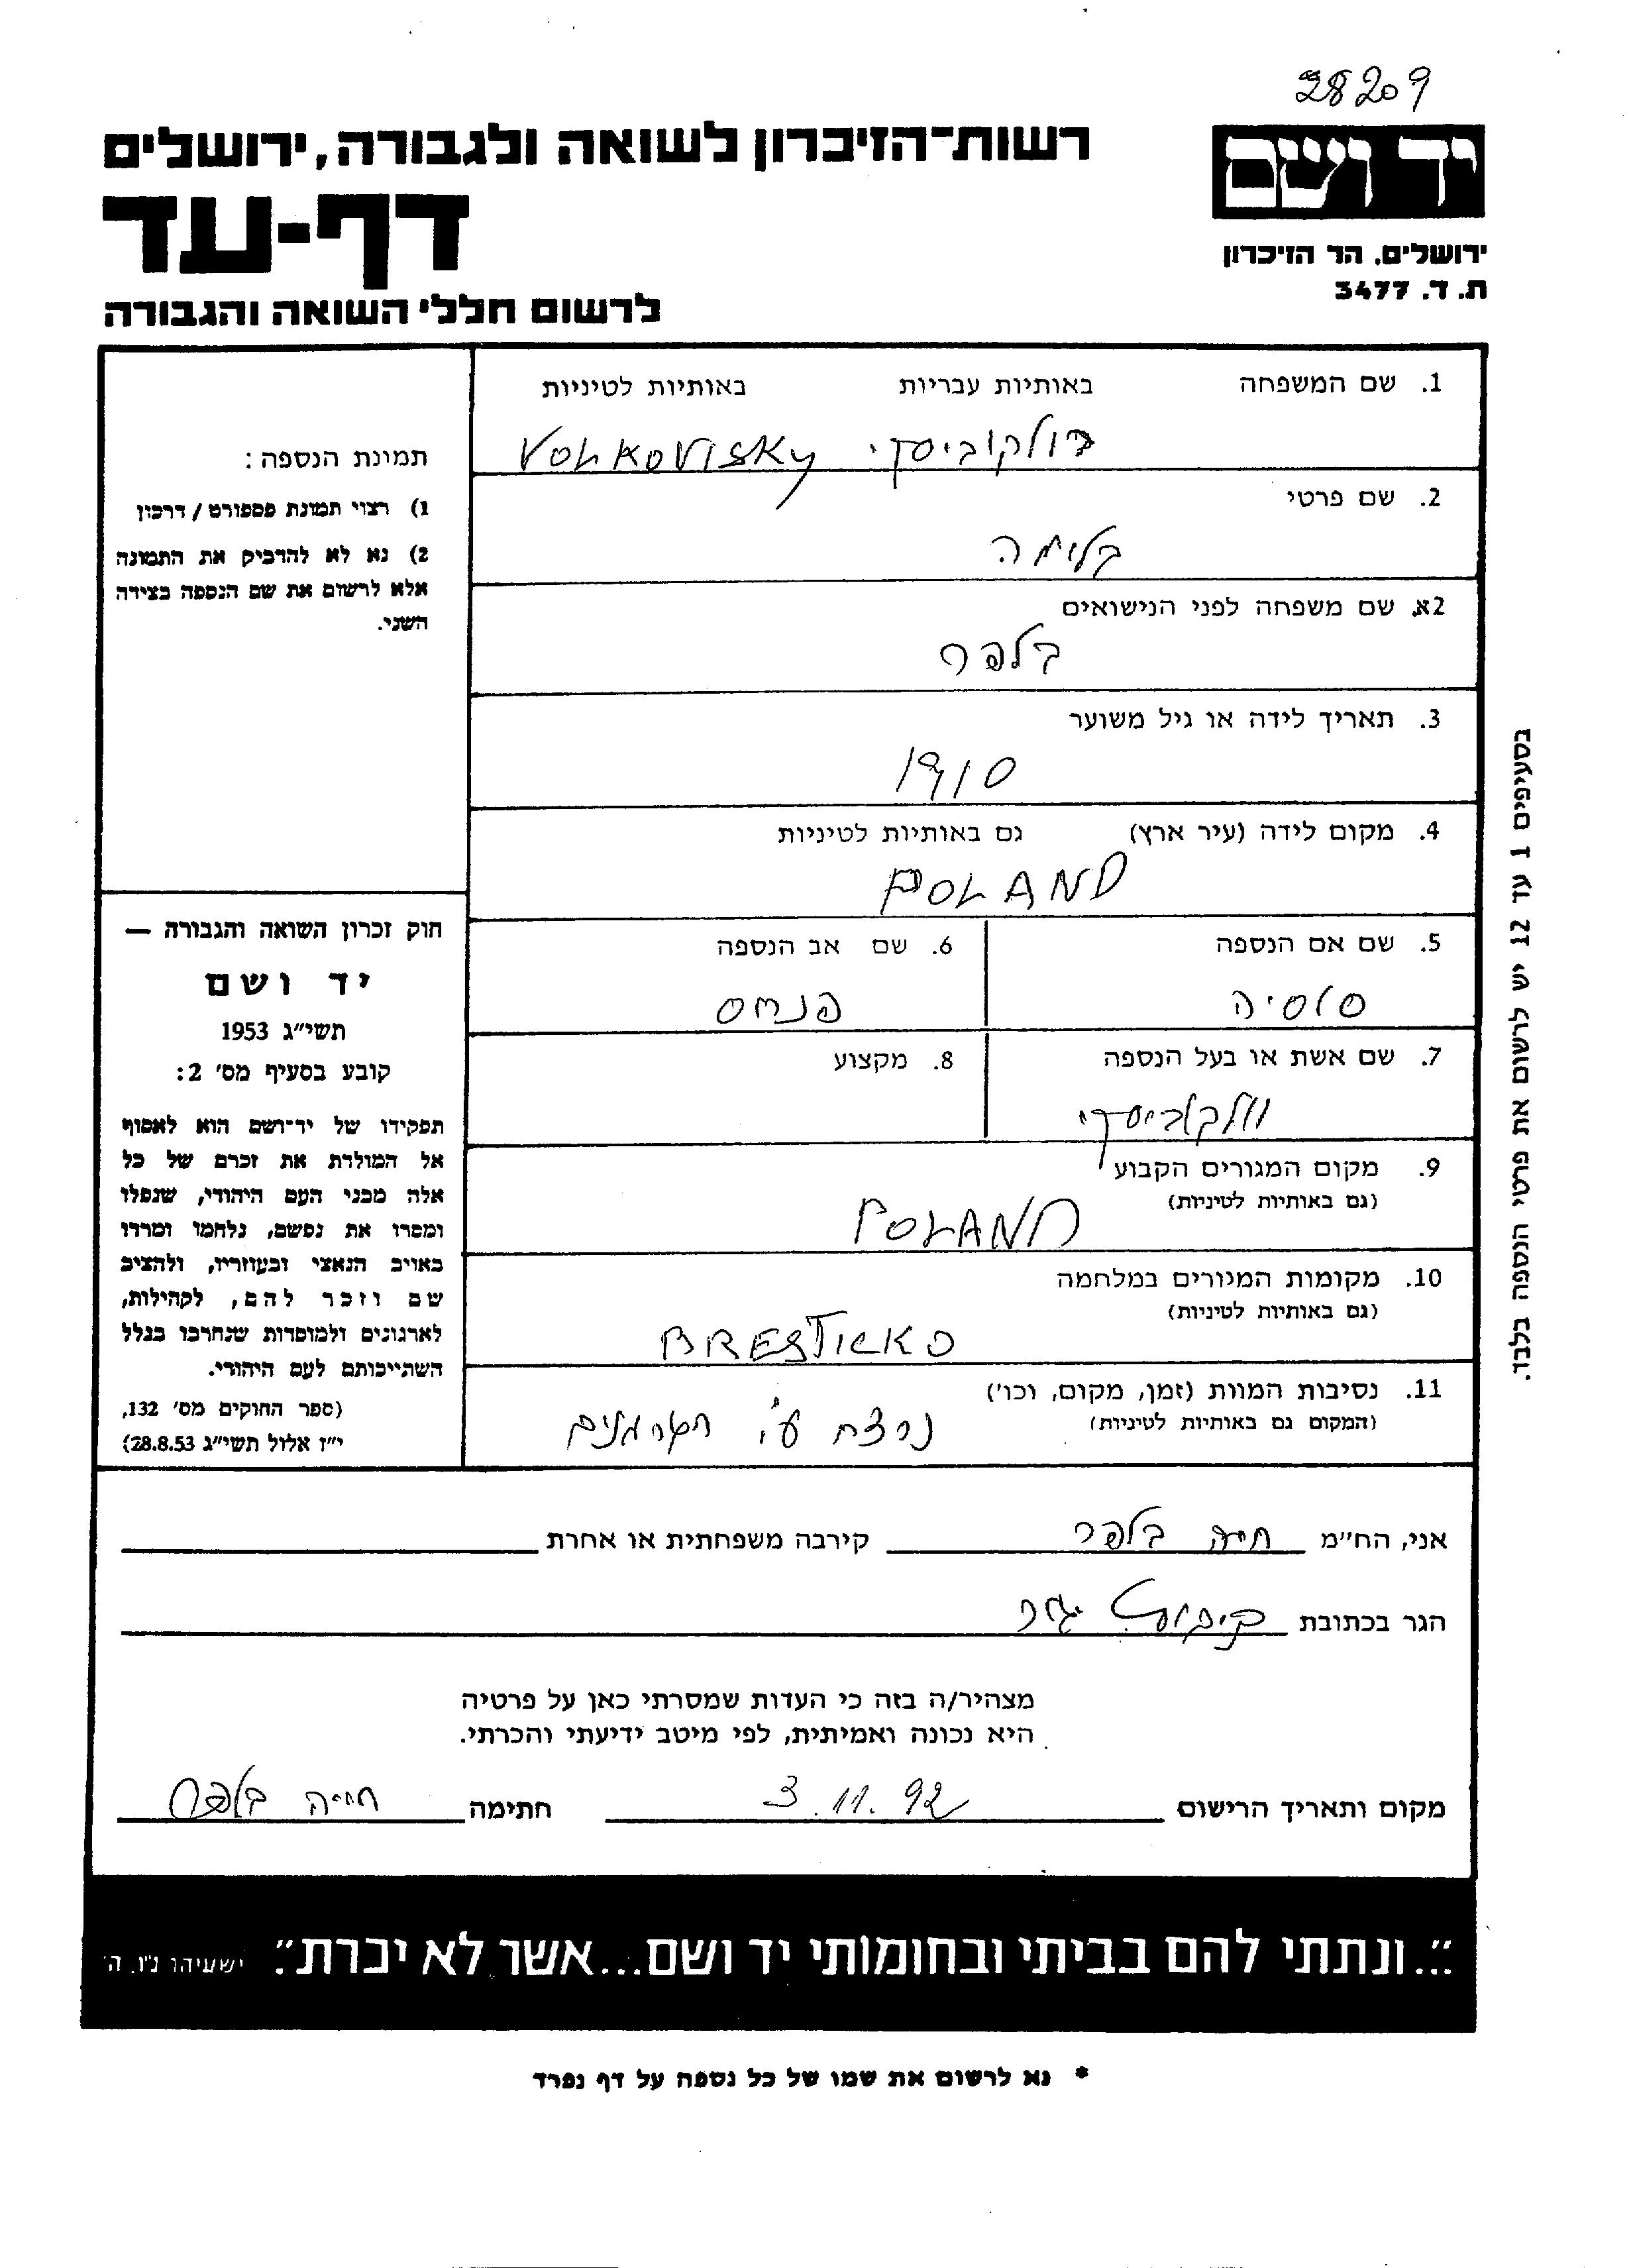 28209
רשות־הזיכרון לשואה ולגבורה, ירושלים
יד ושם
דף-עד
ירושלים. הר הזיכרון
ת. ד. 3477
לרשום חללי השואה והגבורה
1. שם המשפחה באותיות עבריות באותיות לטיניות
וולקוביסקי VOLKOVISKY
2. שם פרטי
בלומה
2א. שם משפחה לפני הנישואים
בלפר
3. תאריך לידה או גיל משוער
1910
4. מקום לידה (עיר ארץ) גם באותיות לטיניות
POLAND
5. שם אם הנספה
סוסיה
6. שם אב הנספה
פנחס
7. שם אשת או בעל הנספה
וולקוביסקי
8. מקצוע
9. מקום המגורים הקבוע
(גם באותיות לטיניות)
POLAND
10. מקומות המגורים במלחמה
(גם באותיות לטיניות)
BRESTICKO
11. נסיבות המוות (זמן, מקום, וכו')
(המקום גם באותיות לטיניות)
נרצח ע"י הגרמנים
תמונת הנספה:
1) רצוי תמונת פספורט / דרכון
2) נא לא להדביק את התמונה
אלא לרשום את שם הנספה בצידה
השני.
חוק זכרון השואה והגבורה —
יד ושם
תשי"ג 1953
קובע בסעיף מס' 2:
תפקידו של יד־ושם הוא לאסוף
אל המולדת את זכרם של כל
אלה מבני העם היהודי, שנפלו
ומסרו את נפשם, נלחמו ומרדו
באויב הנאצי ובעוזריו, ולהציב
שם וזכר להם, לקהילות,
לארגונים ולמוסדות שנחרבו בגלל
השתייכותם לעם היהודי.
(ספר החוקים מס' 132,
י"ז אלול תשי"ג 28.8.53)
בסעיפים 1 עד 12 יש לרשום את פרטי הנספה בלבד.
אני, הח"מ חיה בלפר קירבה משפחתית או אחרת
הגר בכתובת קיבוץ יגור
מצהיר/ה בזה כי העדות שמסרתי כאן על פרטיה
היא נכונה ואמיתית, לפי מיטב ידיעתי והכרתי.
מקום ותאריך הרישום 3.11.92 חתימה חייה בלפר
"...ונתתי להם בביתי ובחומותי יד ושם...אשר לא יכרת". ישעיהו נ"ו, ה'
* נא לרשום את שמו של כל נספה על דף נפרד